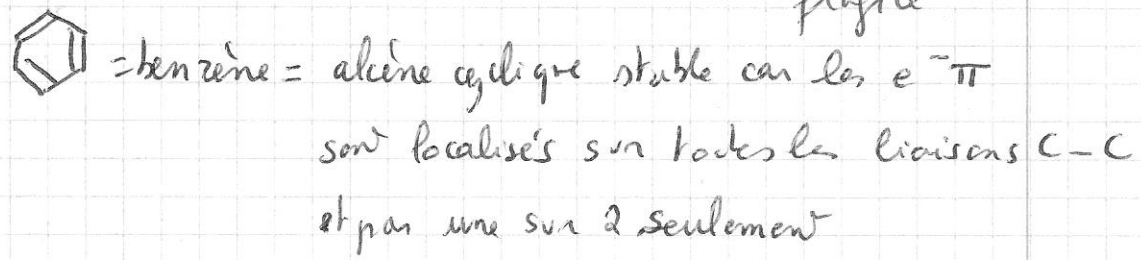 = benzène = alcène cyclique stable car les e⁻ π
sont localisés sur toutes les liaisons C-C
et pas une sur 2 seulement